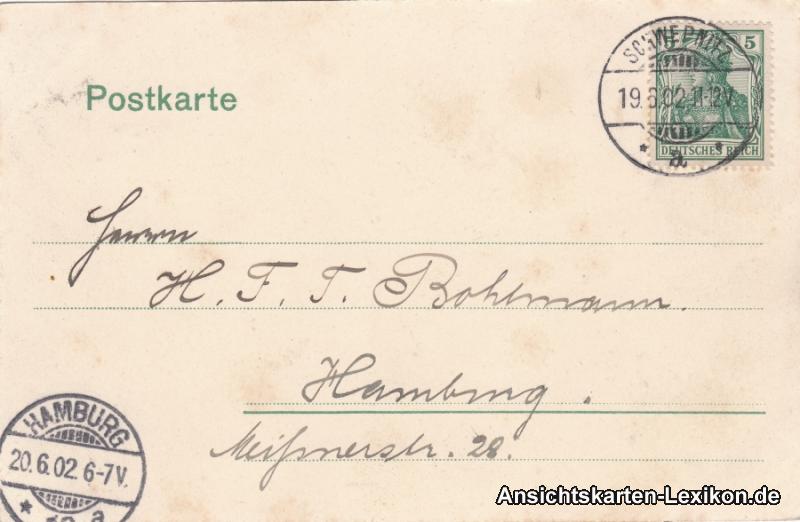 Postkarte
SCHWEPNITZ
19.6.02.11-12V.
* a *
5
DEUTSCHES REICH
Herrn
H. F. T. Bohlmann.
Hamburg.
Meißnerstr. 28.
HAMBURG
20.6.02.6-7V.
Ansichtskarten-Lexikon.de